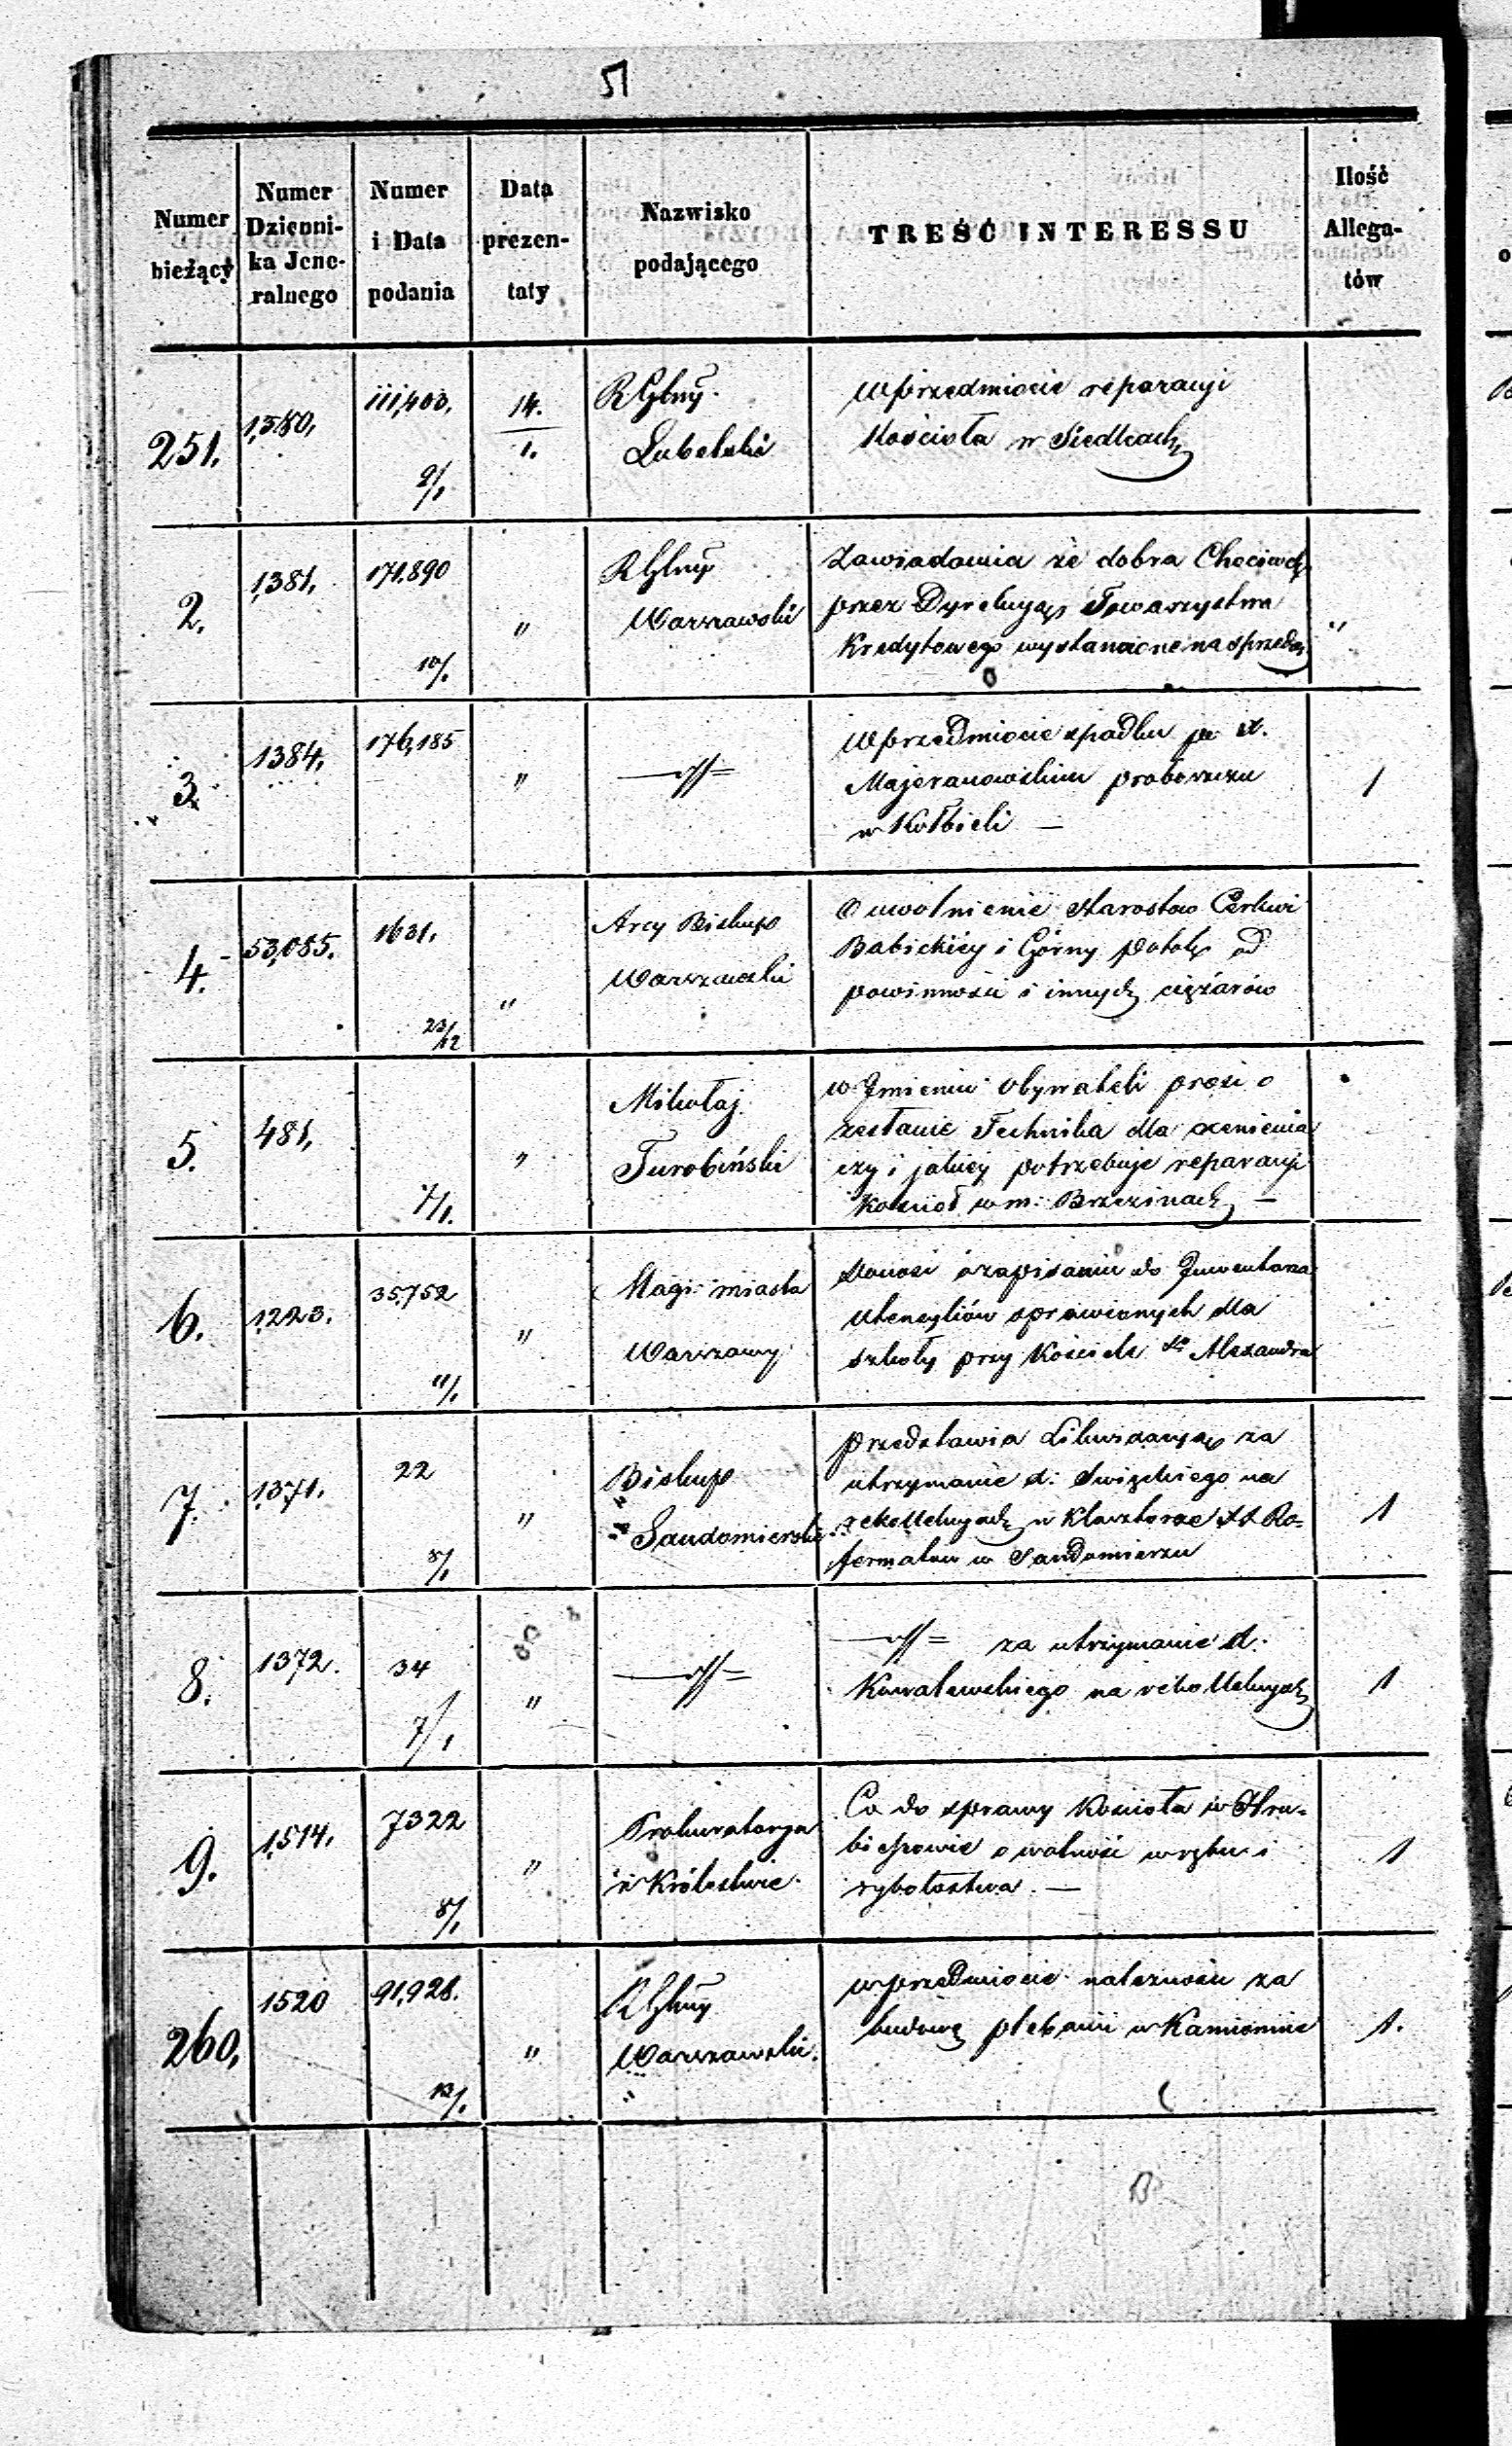 51
Numer bieżący
Numer Dzienni-ka Jene-ralnego
Numer i Data podania
Data prezen-taty
Nazwisko podającego
TREŚĆ INTERESSU
Ilość Allega-tów
251.
1,380,
111,403,
9/1
14.
1.
RGbny
Lubelski
W przedmiocie reparacyi
Kościoła w Siedlcach
2.
1,381,
171,890
10/1
"
RGbny
Warszawski
Zawiadamia że dobra
przez Dyrekcyą Towarzystwa
Kredytowego wystawione na sprzedaż
"
3.
1384,
176,185
"
W przedmiocie spadku po X.
Majeranowskim proboszczu
w Kołbieli —
1
4.
53,085.
1631.
23/12
"
Arcy Biskup
Warszawski
O uwolnienie starostów Cerkwi
Babickiéy i Górny Potok od
powinności i innych ciężarów
5.
481,
7/1.
"
Mikołaj
Turobiński
w Jmieniu Obywateli prosi o
zesłanie Technika dla ocenienia
czy i jakiéj potrzebuje reparacyi
Kościoł w m: Brzezinach —
6.
1223.
35,752
11/1
"
Magi: miasta
Warszawy
donosi o zapisaniu do Jnwentarza
utensyliów sprawionych dla
szkoły przy Kościele Sgo Alexandra
7.
1371.
22
5/1
"
Biskup
Sandomierski
przedstawia Likwidacyą za
utrzymanie X: Święckiego na
rekollekcyach w Klasztorze XX Re=
formatów w Sandomierzu
1
8.
1372.
34
7/1
"
za utrzymanie X.
Kowalewskiego na rekollekcyach
1
9.
1,514.
7322
8/1
"
Prokuratorya
w Królestwie
Co do sprawy Kościoła w Hru=
bieszowie o wolność wrębu i
rybołostwa. —
1
260.
1520
91,928.
12/1
"
RGbny
Warszawski.
w przedmiocie należności za
budowę plebanii w Kamionnie
1.